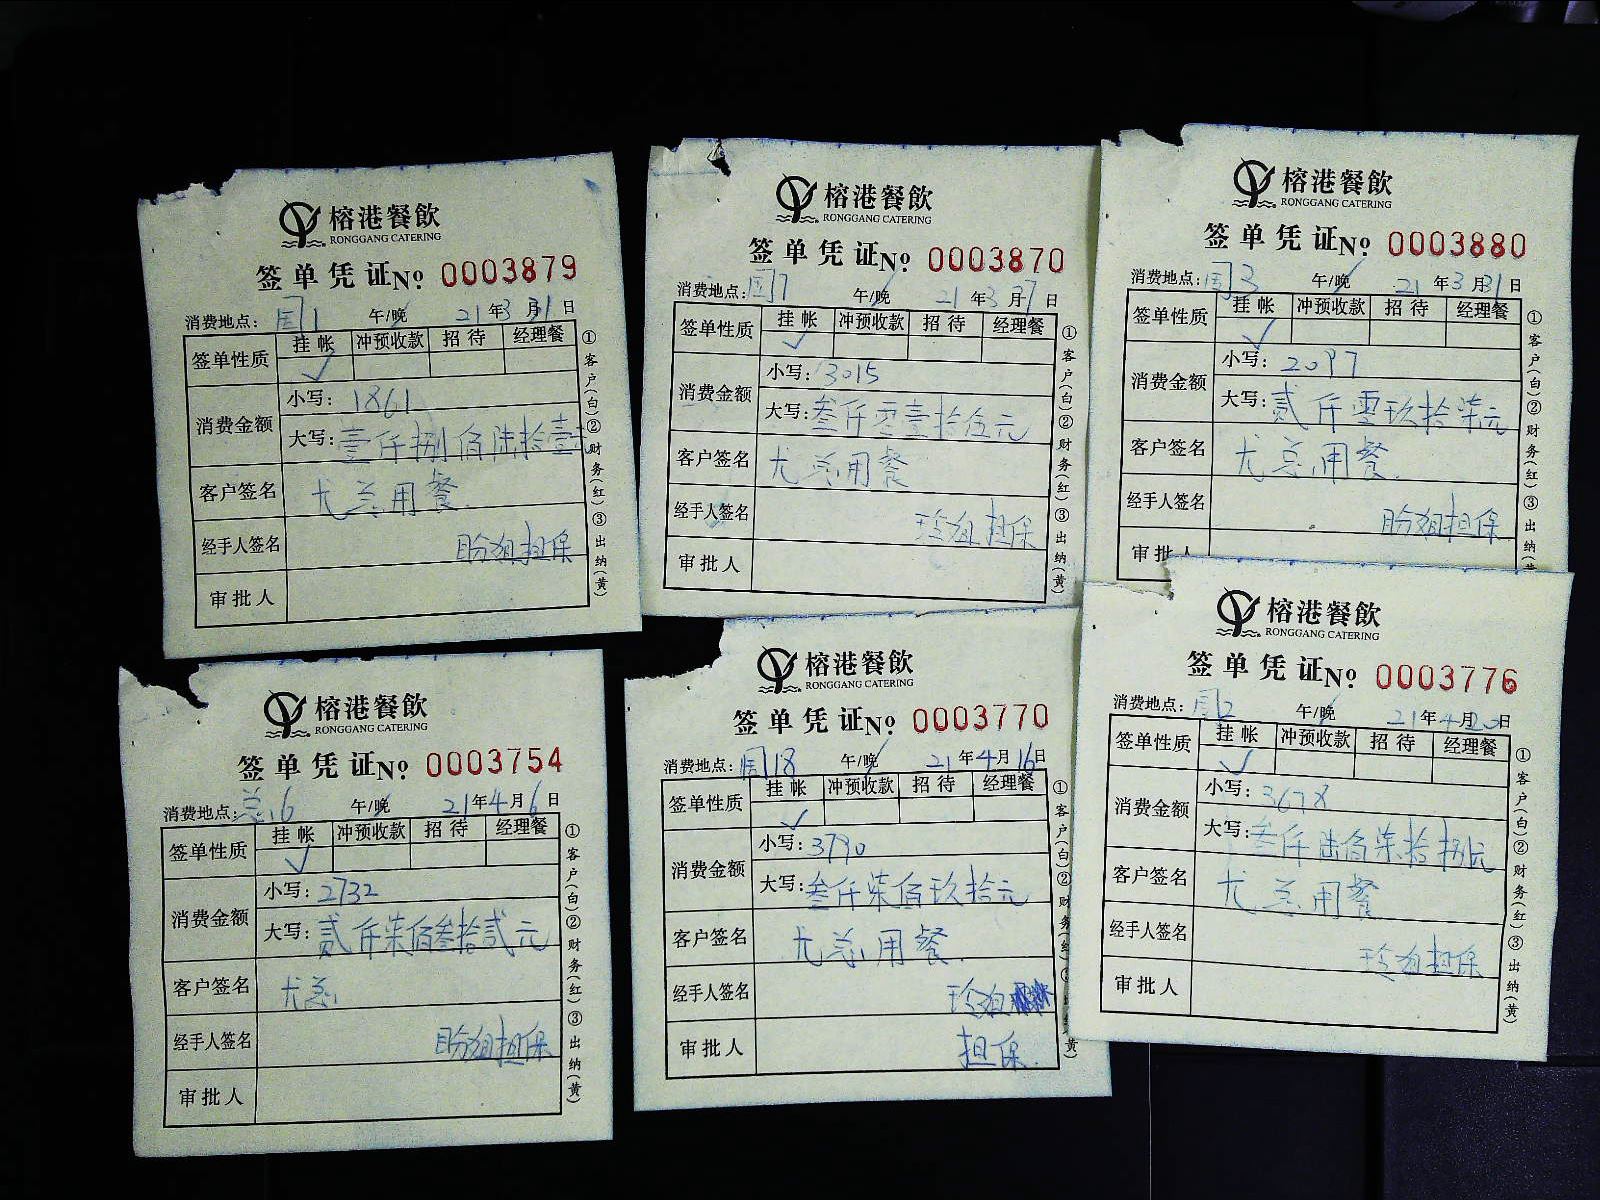 榕港餐飲
RONGGANG CATERING
签单凭证 № 0003879
消费地点: 周1 午/晚 21年3月31日
签单性质 挂帐 冲预收款 招待 经理餐
✓
消费金额 小写: 1861
大写: 壹仟捌佰陆拾壹元
客户签名 尤总用餐
经手人签名 盼姐担保
审批人
①客户(白)②财务(红)③出纳(黄)
榕港餐飲
RONGGANG CATERING
签单凭证 № 0003870
消费地点: 周7 午/晚 21年3月7日
签单性质 挂帐 冲预收款 招待 经理餐
✓
消费金额 小写: 3015
大写: 叁仟零壹拾伍元
客户签名 尤总用餐
经手人签名 玲姐担保
审批人
①客户(白)②财务(红)③出纳(黄)
榕港餐飲
RONGGANG CATERING
签单凭证 № 0003880
消费地点: 周3 午/晚 21年3月31日
签单性质 挂帐 冲预收款 招待 经理餐
✓
消费金额 小写: 2097
大写: 贰仟零玖拾柒元
客户签名 尤总用餐
经手人签名 盼姐担保
审批人
①客户(白)②财务(红)③出纳
榕港餐飲
RONGGANG CATERING
签单凭证 № 0003754
消费地点: 总6 午/晚 21年4月6日
签单性质 挂帐 冲预收款 招待 经理餐
✓
消费金额 小写: 2732
大写: 贰仟柒佰叁拾贰元
客户签名 尤总
经手人签名 盼姐担保
审批人
①客户(白)②财务(红)③出纳(黄)
榕港餐飲
RONGGANG CATERING
签单凭证 № 0003770
消费地点: 周18 午/晚 21年4月16日
签单性质 挂帐 冲预收款 招待 经理餐
✓
消费金额 小写: 3790
大写: 叁仟柒佰玖拾元
客户签名 尤总用餐
经手人签名 玲姐
审批人 担保
①客户(白)②财务
榕港餐飲
RONGGANG CATERING
签单凭证 № 0003776
消费地点: 周2 午/晚 21年4月20日
签单性质 挂帐 冲预收款 招待 经理餐
✓
消费金额 小写: 3678
大写: 叁仟陆佰柒拾捌元
客户签名 尤总用餐
经手人签名 玲姐担保
审批人
①客户(白)②财务(红)③出纳(黄)